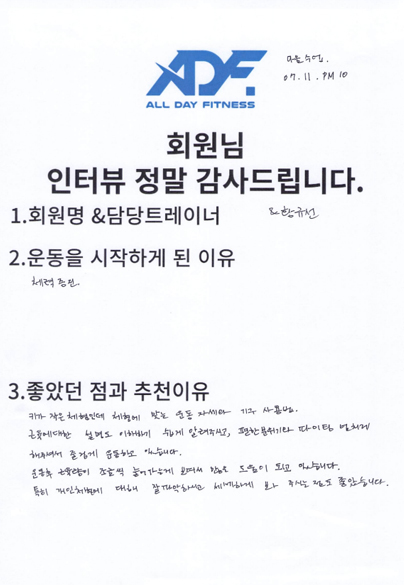 ADF.
ALL DAY FITNESS
다음수업.
07.11. PM 10
회원님
인터뷰 정말 감사드립니다.
1.회원명 &담당트레이너
& 황규선
2.운동을 시작하게 된 이유
체력 증진
3.좋았던 점과 추천이유
키가 작은 체형인데 체형에 맞는 운동 자세와 기구 사용법,
근육에대한 설명도 이해하기 쉽게 알려주시고, 편한분위기와 파이팅 넘치게
해주셔서 즐겁게 운동하고 있습니다.
운동후 근육량이 조금씩 늘어가는게 보여서 많은 도움이 되고 있습니다.
특히 개인체형에 대해 잘 파악하시고 세세하게 봐 주시는 점도 좋았습니다.